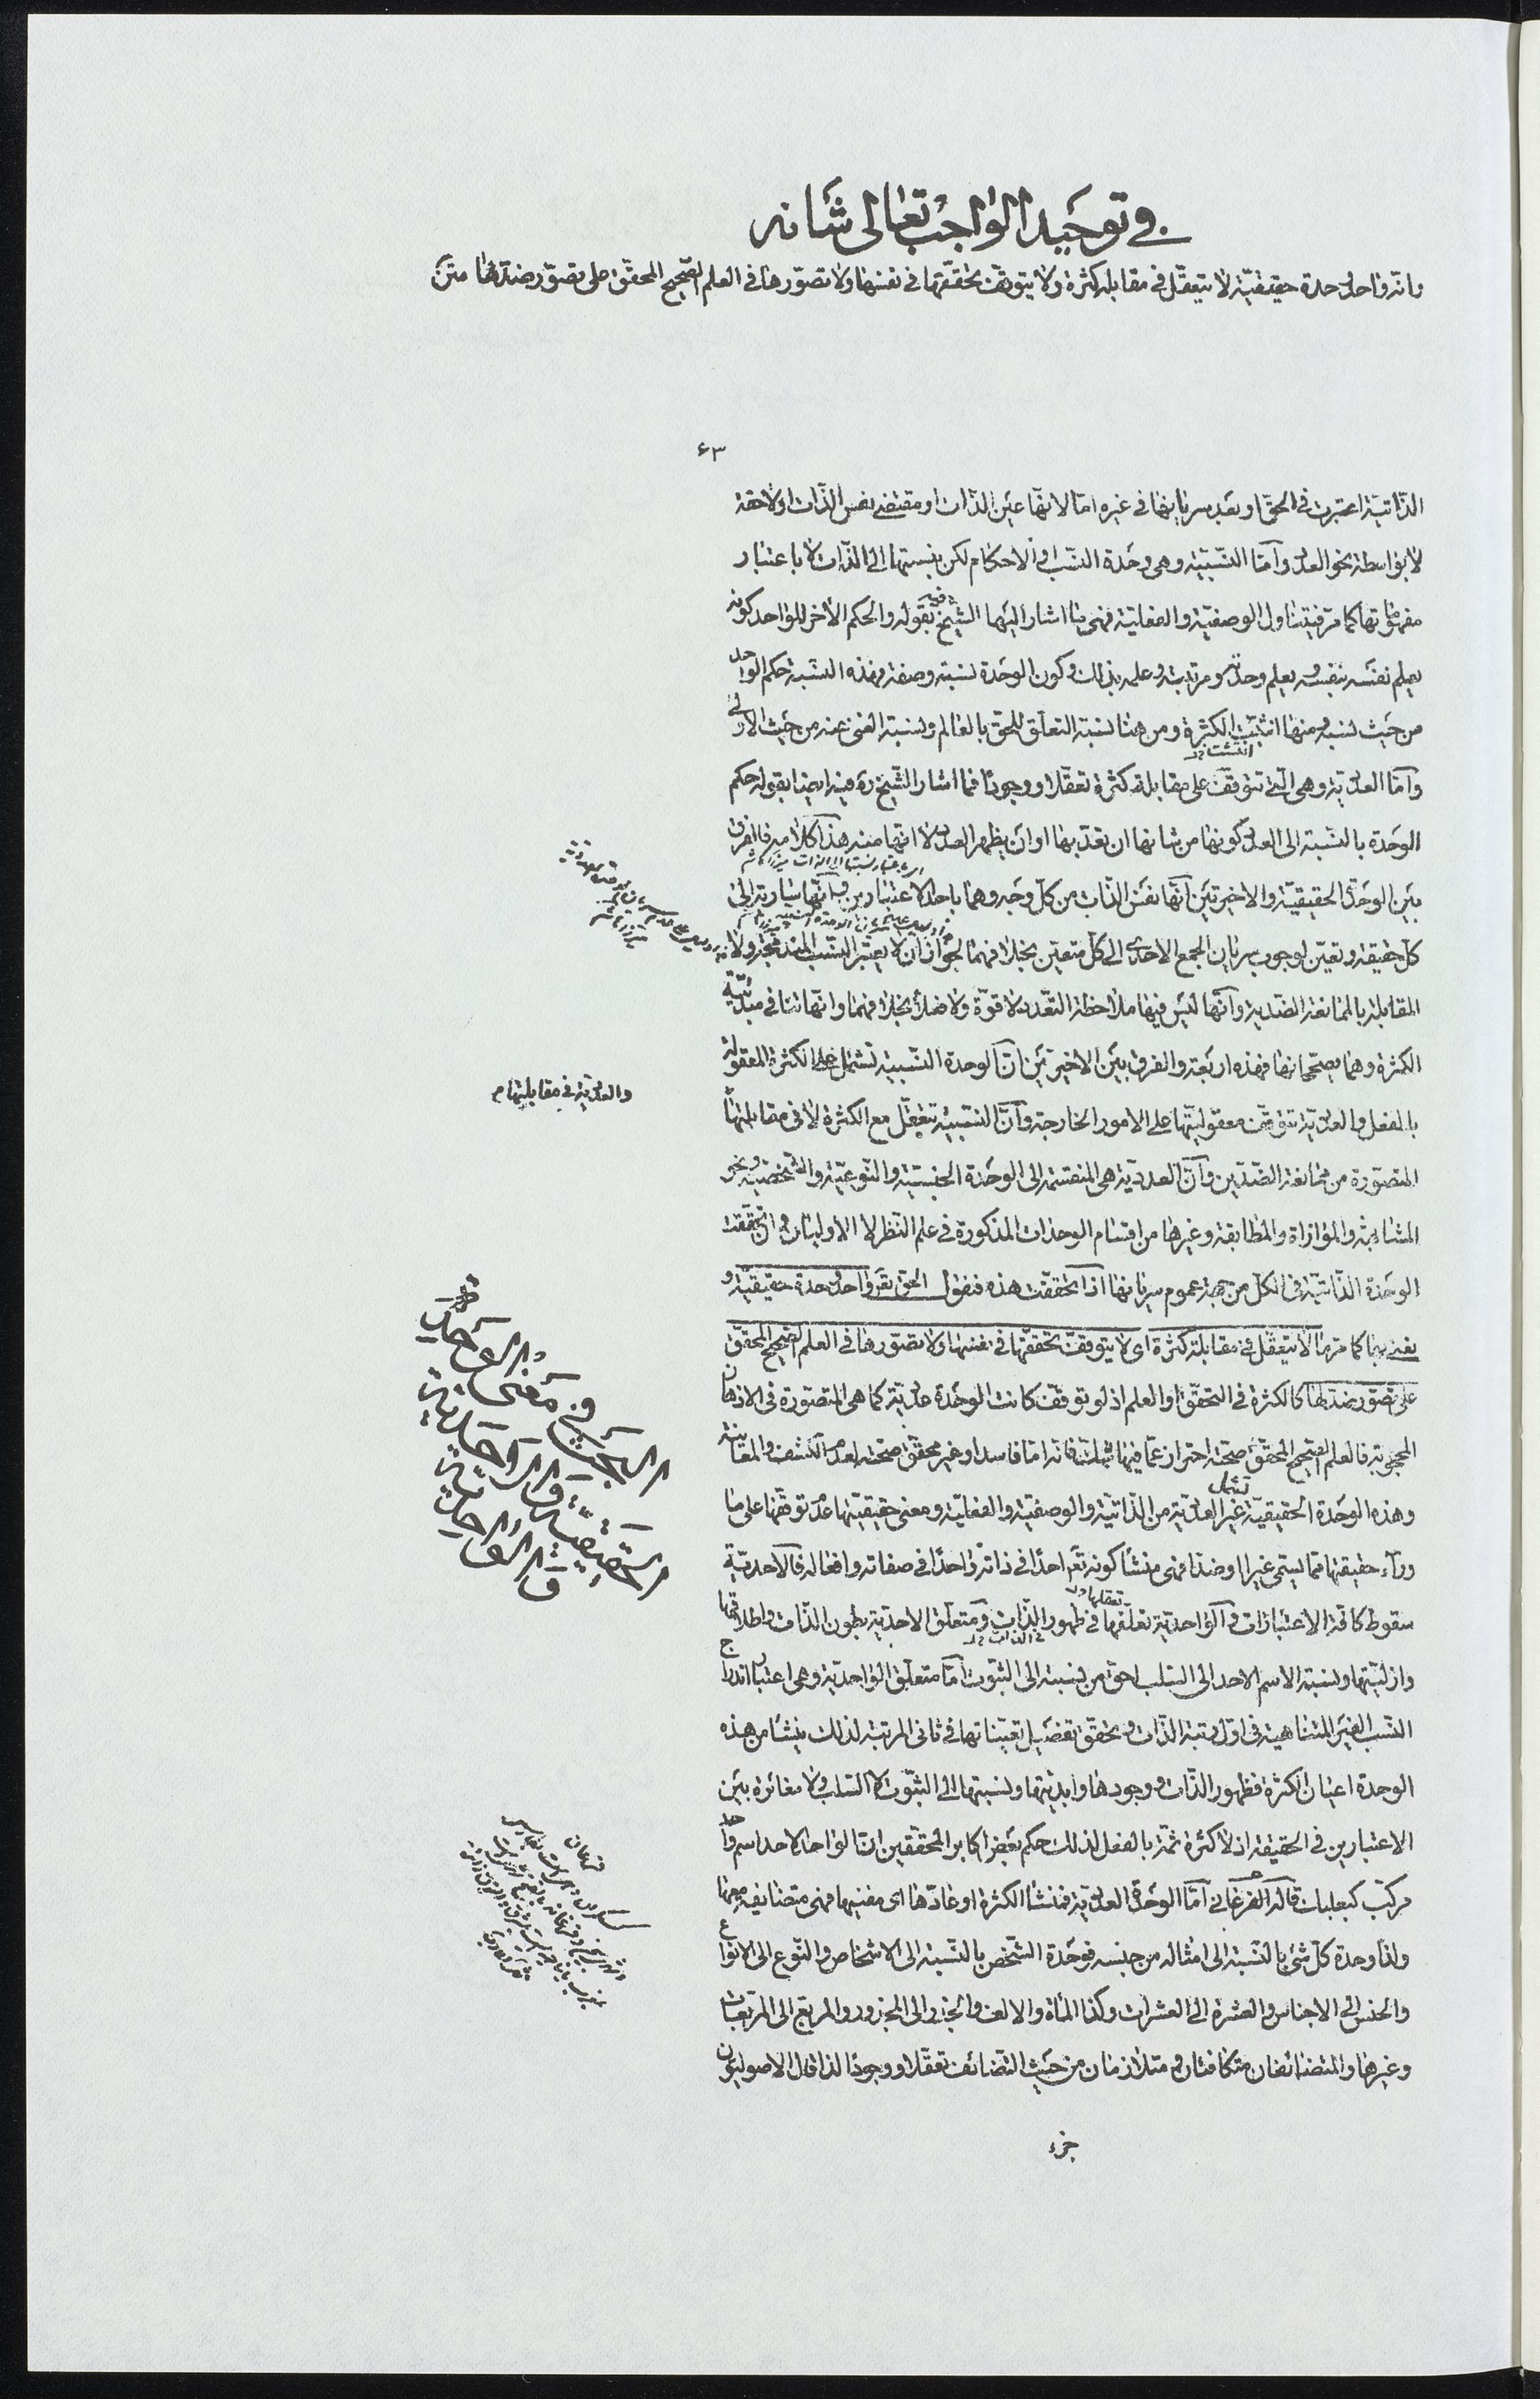 في توحيد الواجب تعالى شانه
وانه واحد وحدة حقيقيّة لا يتعقّل في مقابلة كثرة ولا يتوقف تحققها في نفسها ولا تصوّرها في العلم الصّحيح المحقّق على تصوّر ضدّ لها متن
٤٣
الذّاتيّة اعتبرت في الحقّ او بعد سريانها في غيره امّا لانّها عين الذّات او مقتضى نفس الذّات او لاحقة
لا بواسطة نحو العدد وامّا النّسبيّة وهي وحدة النّسب والاحكام لكن بنسبتها الى الذّات لا باعتبار
مفهوماتها كما مرّ فيتناول الوصفيّة والفعليّة فهي ما اشار اليها الشيخ بقوله والحكم الاخر للواحد كونه
يعلم نفسه بنفسه ويعلم وحدته ومرتبته وعلمه بذلك وكون الوحدة نسبة وصفة وهذه النّسبة حكم الواحد
من حيث نسبه ومنها انتشت الكثرة ومن هنا نسبة التعلّق للحق بالعالم ونسبة الغنى عنه من حيث الاولى
وامّا العدديّة وهي الّتي تتوقف على مقابلة كثرة تعقّلا ووجودًا فما اشار الشّيخ ره فيه ايضا بقوله حكم
الوحدة بالنّسبة الى العدد كونها من شانها ان تعدّ بها او ان يظهر العدد لا انها منه هذا كلامه فالفرق
بين الوحدة الحقيقيّة والاخيرتين انّها نفس الذّات من كلّ وجه وهما باحد الاعتبارين وانّها سارية الى
كلّ حقيقة وتعيّن لوجوب سريان الجمع الاحدى الى كلّ متعيّن بخلافهما لجواز ان لا يعتبر النسب المندمجة ولا
المقابلة بالممانعة الضّديّة وانّها ليس فيها ملاحظة التّعدد لا قوّة ولا فعلا بخلافهما وانّها تنافي مبدئيّة
الكثرة وهما يصحّحانها فهذه اربعة والفرق بين الاخيرتين انّ الوحدة النّسبية تشتمل على الكثرة المعقولة
والعدديّة في مقابلتها م
بالفعل والعدديّة تتوقّف معقوليّتها على الامور الخارجة وانّ النّسبيّة تتعقّل مع الكثرة لا في مقابلتها
المتصوّرة من ممانعة الضّدّين وانّ العدديّة هي المنقسمة الى الوحدة الجنسيّة والنّوعيّة والشّخصيّة ونحو
المشابهة والموازاة والمطابقة وغيرها من اقسام الوحدات المذكورة في علم النّظر لا الاوليان وان تحقّقت
الوحدة الذّاتيّة في الكل من جهة عموم سريانها اذا تحققت هذه فنقول الحق تقر واحد وحدة حقيقيّة و
يعني بها كما مرّ ما لا يتعقّل في مقابلة كثرة اي لا يتوقف تحققها في نفسها ولا تصوّرها في العلم الصّحيح المحقّق
على تصوّر ضدّ لها كالكثرة في التحقّق او العلم اذ لو توقف كانت الوحدة عدديّة كما هي المتصوّرة في الاذهان
المحجوبة فالعلم الصّحيح المحقّق صحّته احتراز عمّا فيها تمثّلت فانه امّا فاسد او غير محقّق صحّته لعدم الكشف والمعاينة
وهذه الوحدة الحقيقيّة غير العدديّة من الذّاتيّة والوصفيّة والفعليّة ومعنى حقيقيّتها عدم توقّفها على ما
وراء حقيقتها ممّا يسمّى غيرا او ضدّا فهي منشأ كونه تع احدًا في ذاته واحدًا في صفاته وافعاله فالاحديّة
سقوط كافة الاعتبارات والواحديّة تعلقها في ظهور الذّات ومتعلّق الاحديّة بطون الذّات واطلاقها
وازليّتها ونسبة الاسم الاحد الى السّلب احق من نسبته الى الثبوت امّا متعلّق الواحديّة وهي اعتبار اندراج
النّسب الغير المتناهية في اوّل رتبة الذّات وتحقق تفضيل تعيّناتها في ثاني المرتبة لذلك ينشأ من هذه
الوحدة اعيان الكثرة فظهور الذّات ووجودها وابديّتها ونسبتها الى الثبوت لا السّلب ولا مغائرة بين
الاعتبارين في الحقيقة اذ لا كثرة ثمّة بالفعل لذلك حكم بعض اكابر المحقّقين انّ الواحد الاحد اسم واحد
مركّب كبعلبك قاله الفرغاني امّا الوحدة العدديّة فمنشأ الكثرة او عادّها اي مفنيها فهي متضايفة معها
ولذا وحدة كلّ شئ بالنّسبة الى امثاله من جنسه فوحدة الشّخص بالنّسبة الى الاشخاص والنّوع الى الانواع
والجنس الى الاجناس والعشرة الى العشرات وكذا المأة والالف والجذر الى المجذور والمربّع الى المربّعات
وغيرها والمتضائفان متكافئان ومتلازمان من حيث التّضائف تعقّلا ووجودًا لذا قال الاصوليّون
جزء